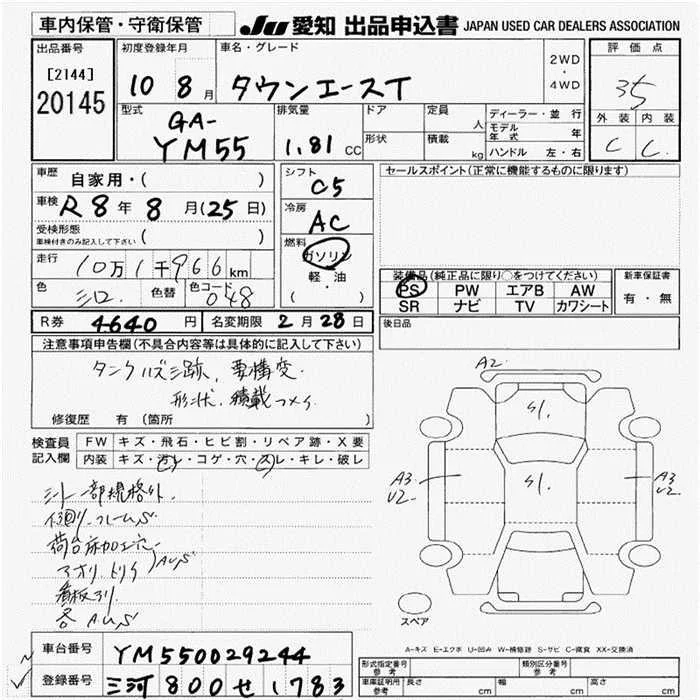 車内保管・守衛保管
JU 愛知 出品申込書 JAPAN USED CAR DEALERS ASSOCIATION
出品番号
[2144]
20145
初度登録年月
10 8月
車名・グレード
タウンエースT
2WD
・
4WD
評価点
35
外装 内装
C C
型式
GA-
YM55
排気量
1.81 CC
ドア
形状
定員
人
積載
kg
ディーラー・並行
モデル年式 年
ハンドル 左・右
車歴 自家用・( )
車検 R8年8月(25日)
受検形態
車検付きのみ記入して下さい ( )
走行 10万1千966km
色 シロ 色替 色コード 048
シフト
C5
冷房
AC
燃料
ガソリン
軽・油
( )
セールスポイント(正常に機能するものに限ります)
装備品(純正品に限り○をつけてください)
PS PW エアB AW
SR ナビ TV カワシート
新車保証書
有・無
R券 4640円 名変期限 2月28日
後日品
注意事項申告欄(不具合内容等は具体的に記入して下さい)
要構変
形状、積載
修復歴 有 (箇所 )
検査員
記入欄
FW キズ・飛石・ヒビ割・リペア跡・X要
内装 キズ・汚レ・コゲ・穴・スレ・キレ・破レ
シート一部規格外
荷台床加工穴
アオリ、トリイ AUS
看板
各 AUS
A2
S1
S1
A3
U2
A3
U2
スペア
A-キズ E-エクボ U-凹み W-補修跡 S-サビ C-腐食 XX-交換済
車台番号 YM550029244
登録番号 三河 800 せ 1783
形式指定番号
参考
類別区分番号
参考
車両寸法
参考
長さ cm 幅 cm 高さ cm